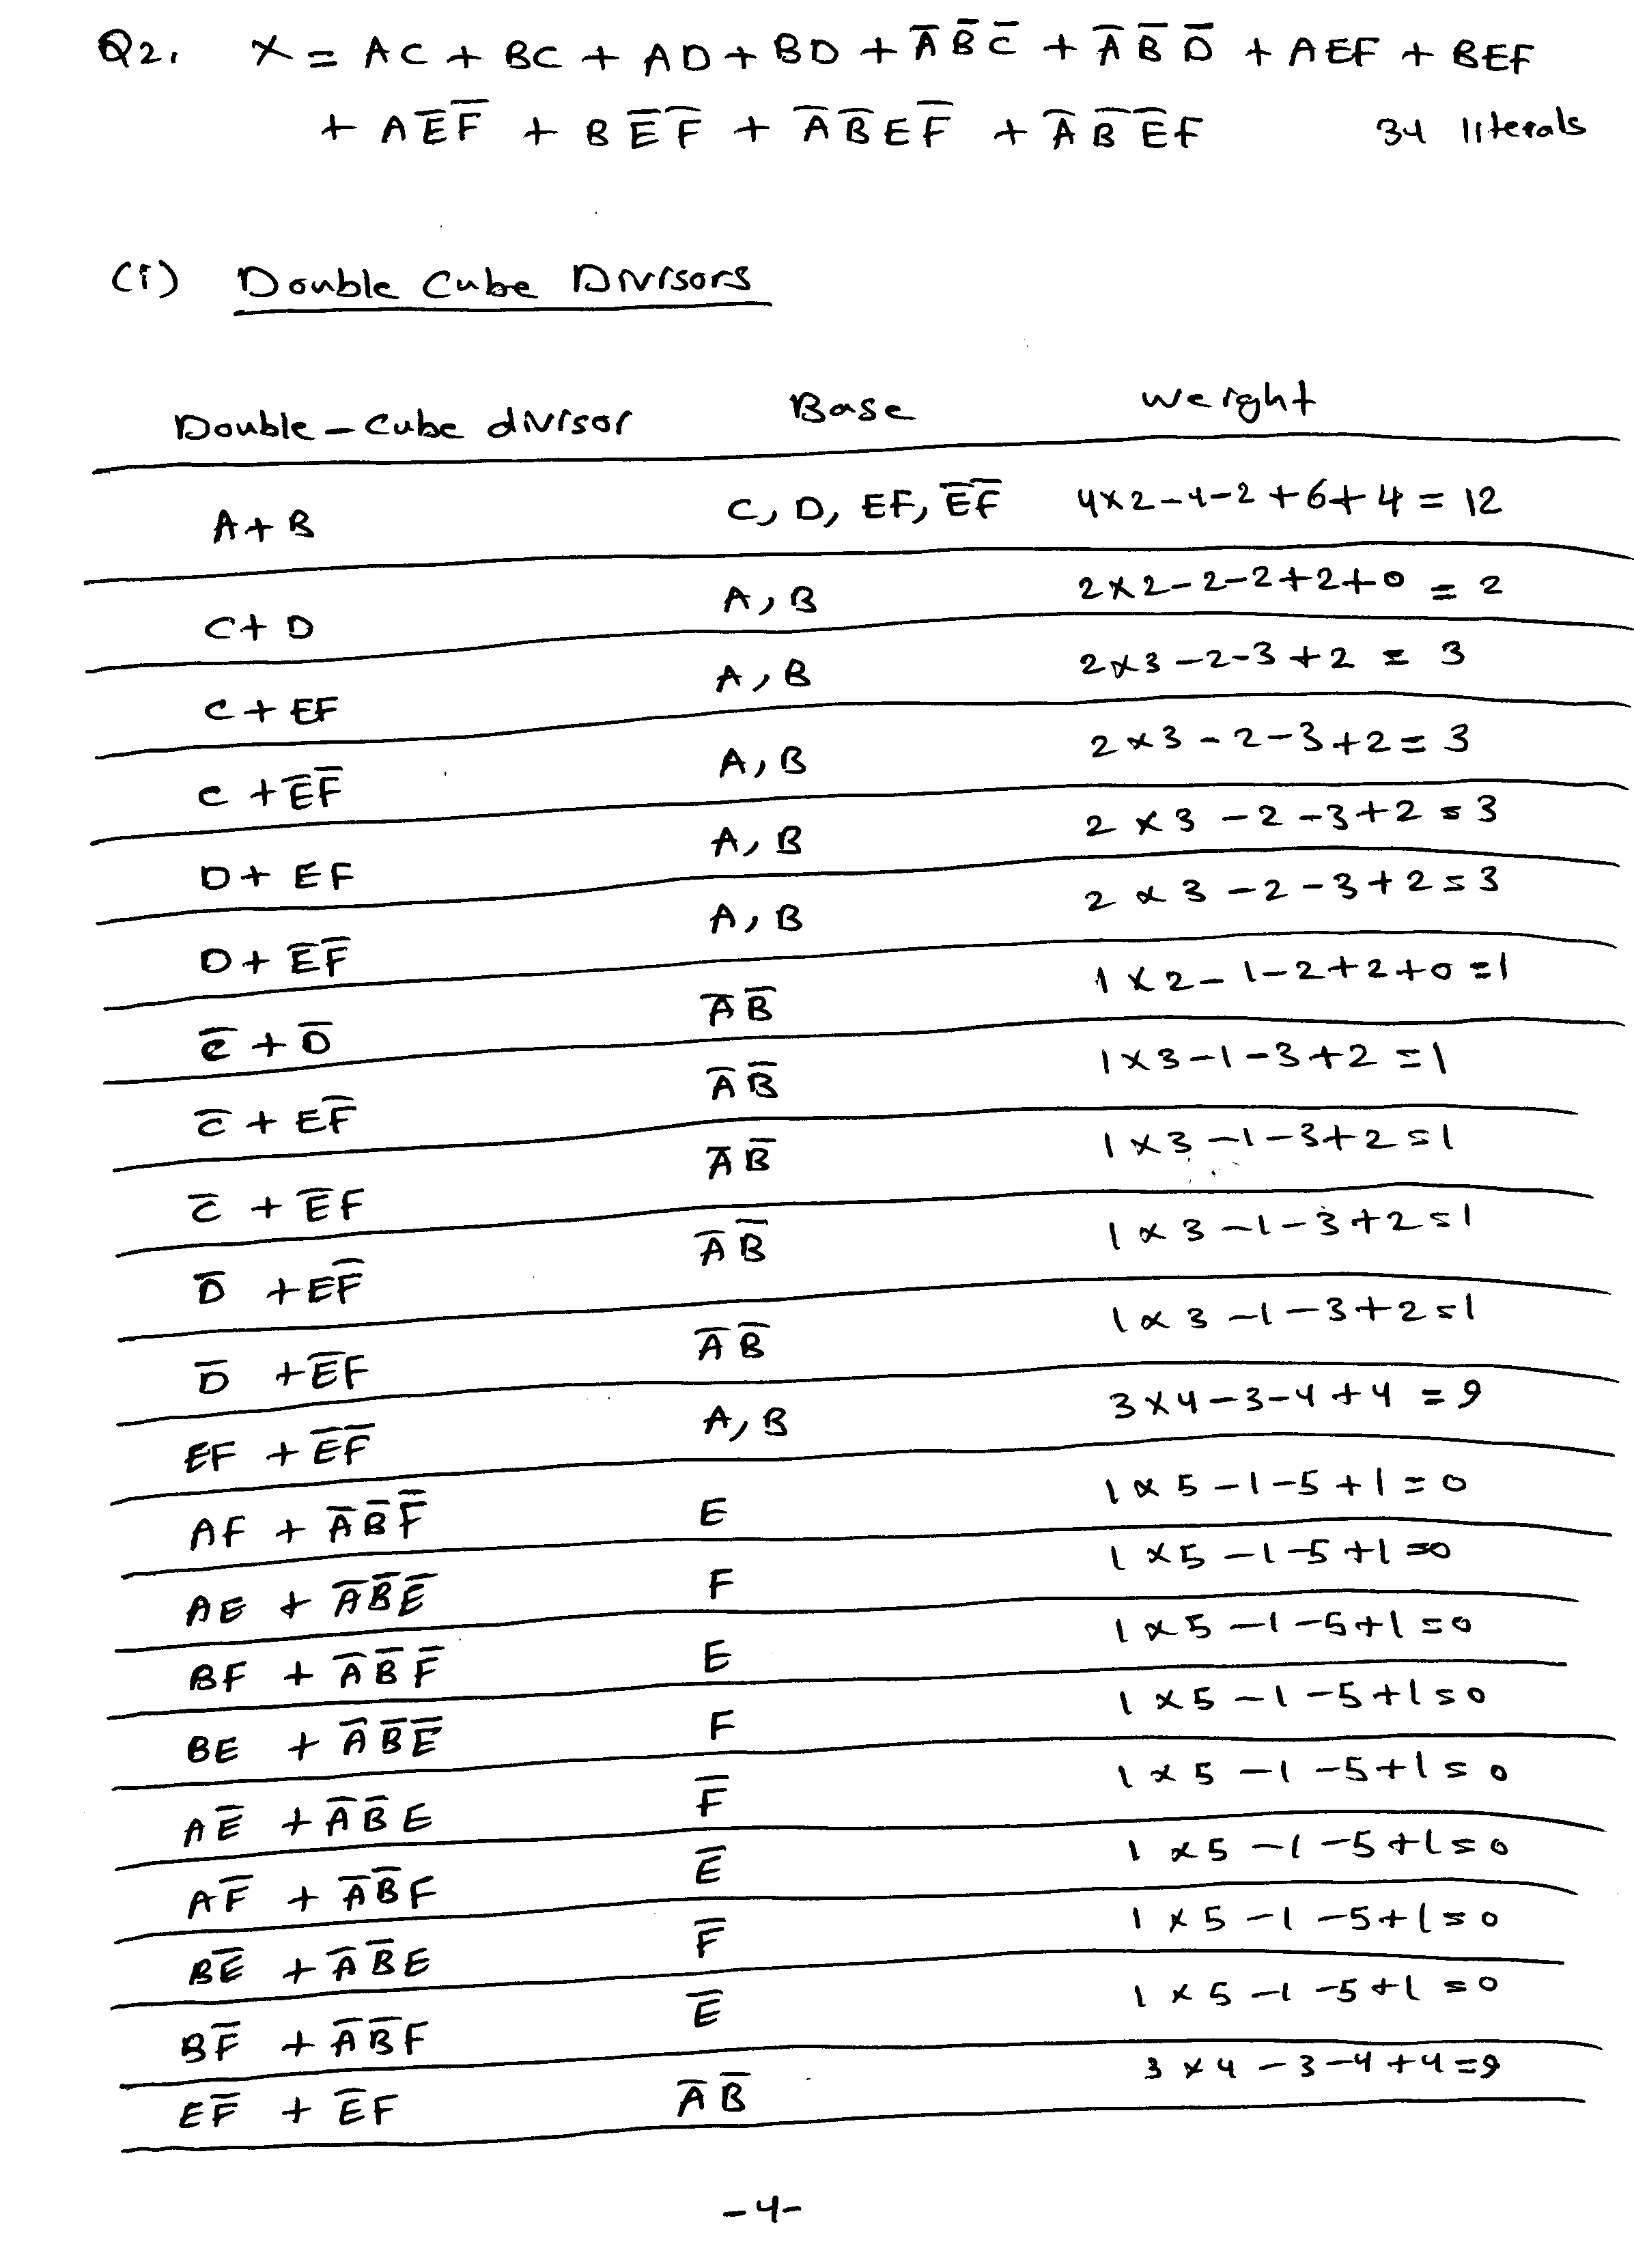 Q2. X = AC + BC + AD + BD + A̅ B̅ C̅ + A̅ B̅ D̅ + AEF + BEF
+ A E̅ F̅ + B E̅ F̅ + A̅ B̅ E F̅ + A̅ B̅ E̅ F 34 literals
(i) Double Cube Divisors
Double-Cube divisor Base Weight
A + B C, D, EF, E̅F̅ 4×2-4-2+6+4 = 12
C + D A, B 2×2-2-2+2+0 = 2
C + EF A, B 2×3-2-3+2 = 3
C + E̅F̅ A, B 2×3-2-3+2 = 3
D + EF A, B 2×3-2-3+2 = 3
D + E̅F̅ A, B 2×3-2-3+2 = 3
C̅ + D̅ A̅ B̅ 1×2-1-2+2+0 = 1
C̅ + EF̅ A̅ B̅ 1×3-1-3+2 = 1
C̅ + E̅F A̅ B̅ 1×3-1-3+2 = 1
D̅ + EF̅ A̅ B̅ 1×3-1-3+2 = 1
D̅ + E̅F A̅ B̅ 1×3-1-3+2 = 1
EF + E̅F̅ A, B 3×4-3-4+4 = 9
AF + A̅B̅F̅ E 1×5-1-5+1 = 0
AE + A̅B̅E̅ F 1×5-1-5+1 = 0
BF + A̅B̅F̅ E 1×5-1-5+1 = 0
BE + A̅B̅E̅ F 1×5-1-5+1 = 0
AE̅ + A̅B̅E F̅ 1×5-1-5+1 = 0
AF̅ + A̅B̅F E̅ 1×5-1-5+1 = 0
BE̅ + A̅B̅E F̅ 1×5-1-5+1 = 0
BF̅ + A̅B̅F E̅ 1×5-1-5+1 = 0
EF̅ + E̅F A̅ B̅ 3×4-3-4+4 = 9
-4-